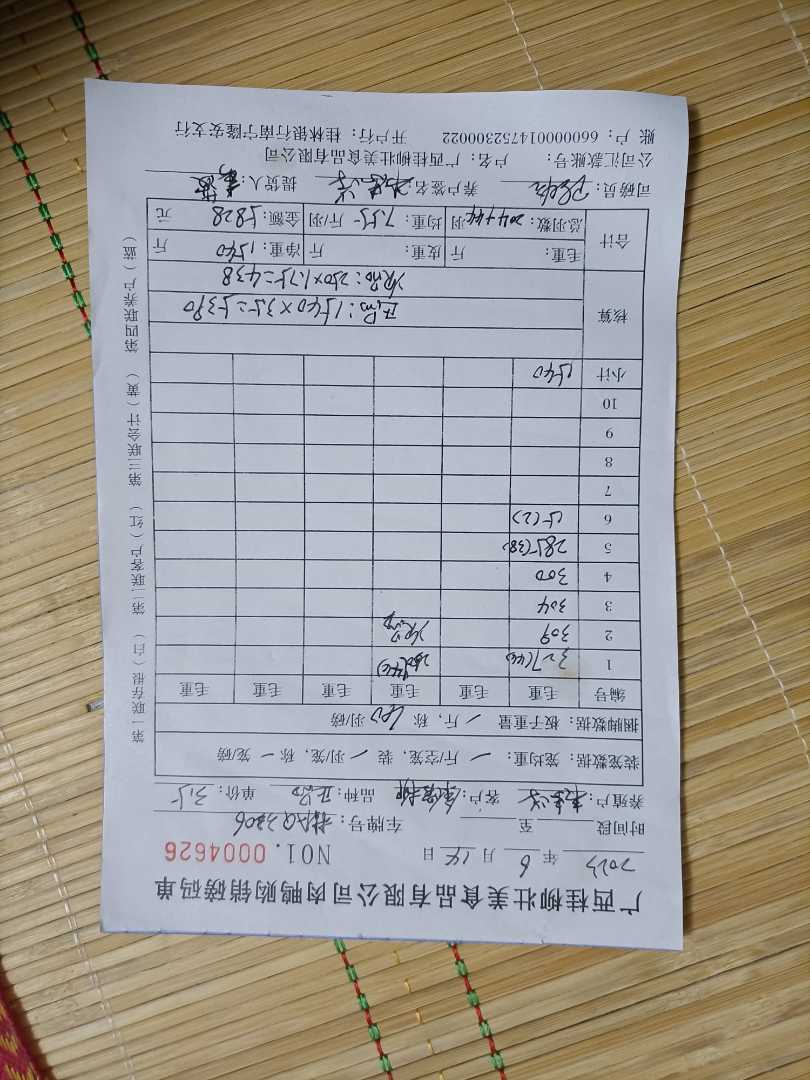 广西桂柳壮美食品有限公司肉鸭购销磅码单
2023 年 6 月 14 日 NO1. 0004626
时间段 至 车牌号：
养殖户： 客户： 品种：正品 单价：3.5
装笼数据：笼均重： 一 斤/空笼，装 一 羽/笼，称 一 笼/磅
捆脚数据：板子重量 / 斤，称 羽/磅
编号 毛重 毛重 毛重 毛重 毛重 毛重
1 327(44) 250(44)
2 309 次品
3 304
4 300
5 285(38)
6 15(2)
7
8
9
10
小计 1540
核算
正品：1540×3.5=5390
次品：250×1.75=438
合计
毛重： 斤 皮重： 斤 净重：1540 斤
总羽数：204+44 羽 均重：7.55 斤/羽 金额：5828 元
司磅员： 养户签名： 提货人：
公司汇款账号： 户名：广西桂柳壮美食品有限公司
账户：660000014752300022 开户行：桂林银行南宁隆安支行
第一联存根（白） 第二联客户（红） 第三联会计（黄） 第四联养户（蓝）